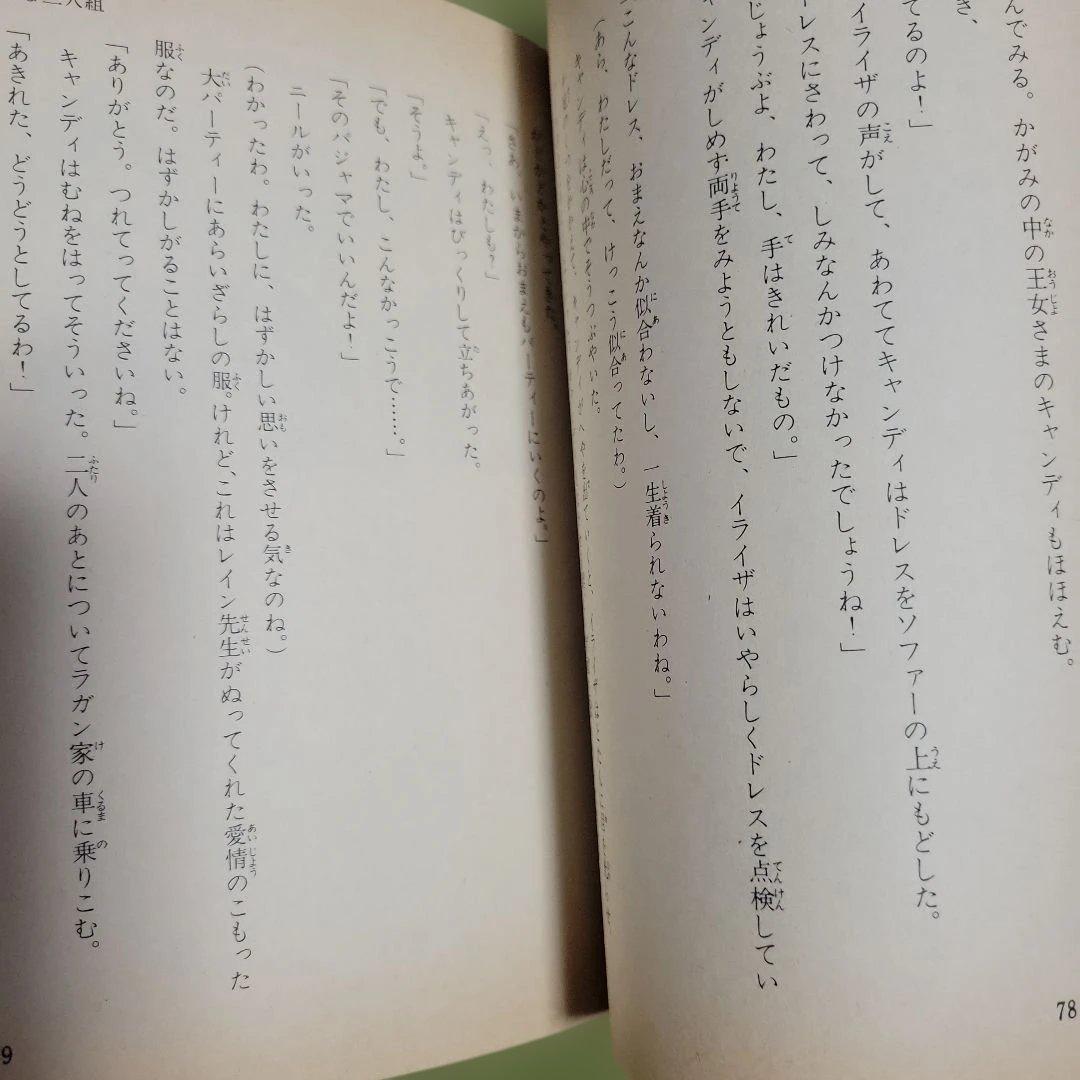 んでみる。かがみの中の王女さまのキャンディもほほえむ。
き、
てるのよ!」
イライザの声がして、あわててキャンディはドレスをソファーの上にもどした。
レスにさわって、しみなんかつけなかったでしょうね!」
じょうぶよ、わたし、手はきれいだもの。」
ンディがしめす両手をみようともしないで、イライザはいやらしくドレスを点検してい
こんなドレス、おまえなんか似合わないし、一生着られないわね。」
(あら、わたしだって、けっこう似合ってたわ。)
キャンディは心の中でそうつぶやいた。
78
「さあ、いまからおまえもパーティーにいくのよ。」
「えっ、わたしも?」
キャンディはびっくりして立ちあがった。
「そうよ。」
「でも、わたし、こんなかっこうで……。」
「そのパジャマでいいんだよ!」
ニールがいった。
(わかったわ。わたしに、はずかしい思いをさせる気なのね。)
大パーティーにあらいざらしの服。けれど、これはレイン先生がぬってくれた愛情のこもった
服なのだ。はずかしがることはない。
「ありがとう。つれてってくださいね。」
キャンディはむねをはってそういった。二人のあとについてラガン家の車に乗りこむ。
「あきれた、どうどうとしてるわ!」
二人組
9